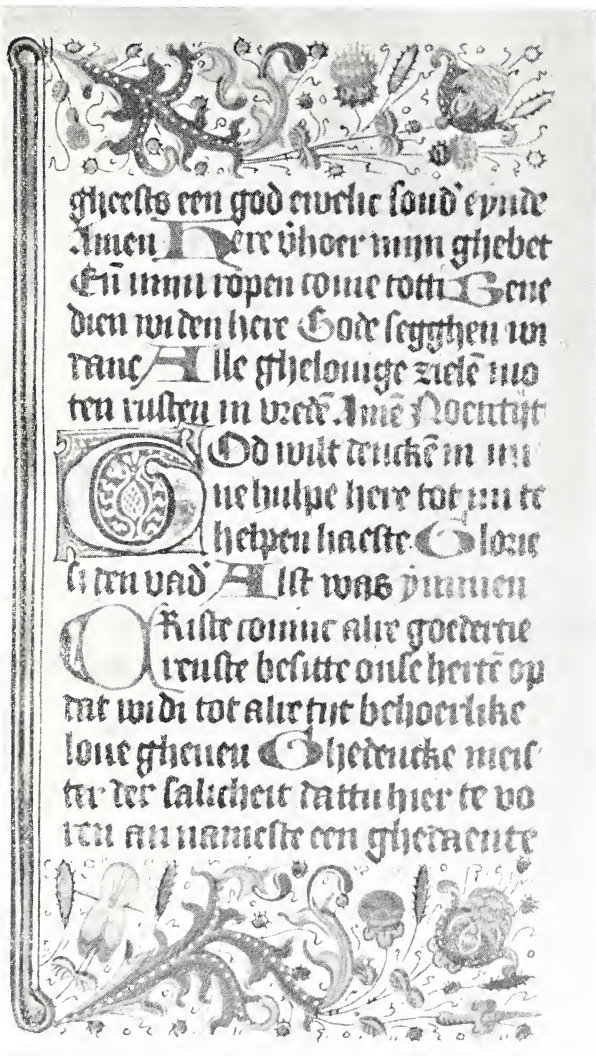 gheests een god ewelic sond' eynde
Amen Here v̄hoer mijn ghebet
En̄ mijn ropen come totti Bene
dien wi den here Gode segghen wi
danc Alle ghelouige zielē mo
ten rusten in vredē Amē Noentijt
GOd wilt dencken̄ in mi
ne hulpe here tot mi te
helpen haeste Glorie
si den vad' Alst was ynnien
CRiste comme alre goedertie
renste besitte onse hertē op
dat wi di tot alre tijt behoerlike
loue gheuen Ghedencke meis
ter der salicheit dattu hier te vo
ren an nameste een ghedaente